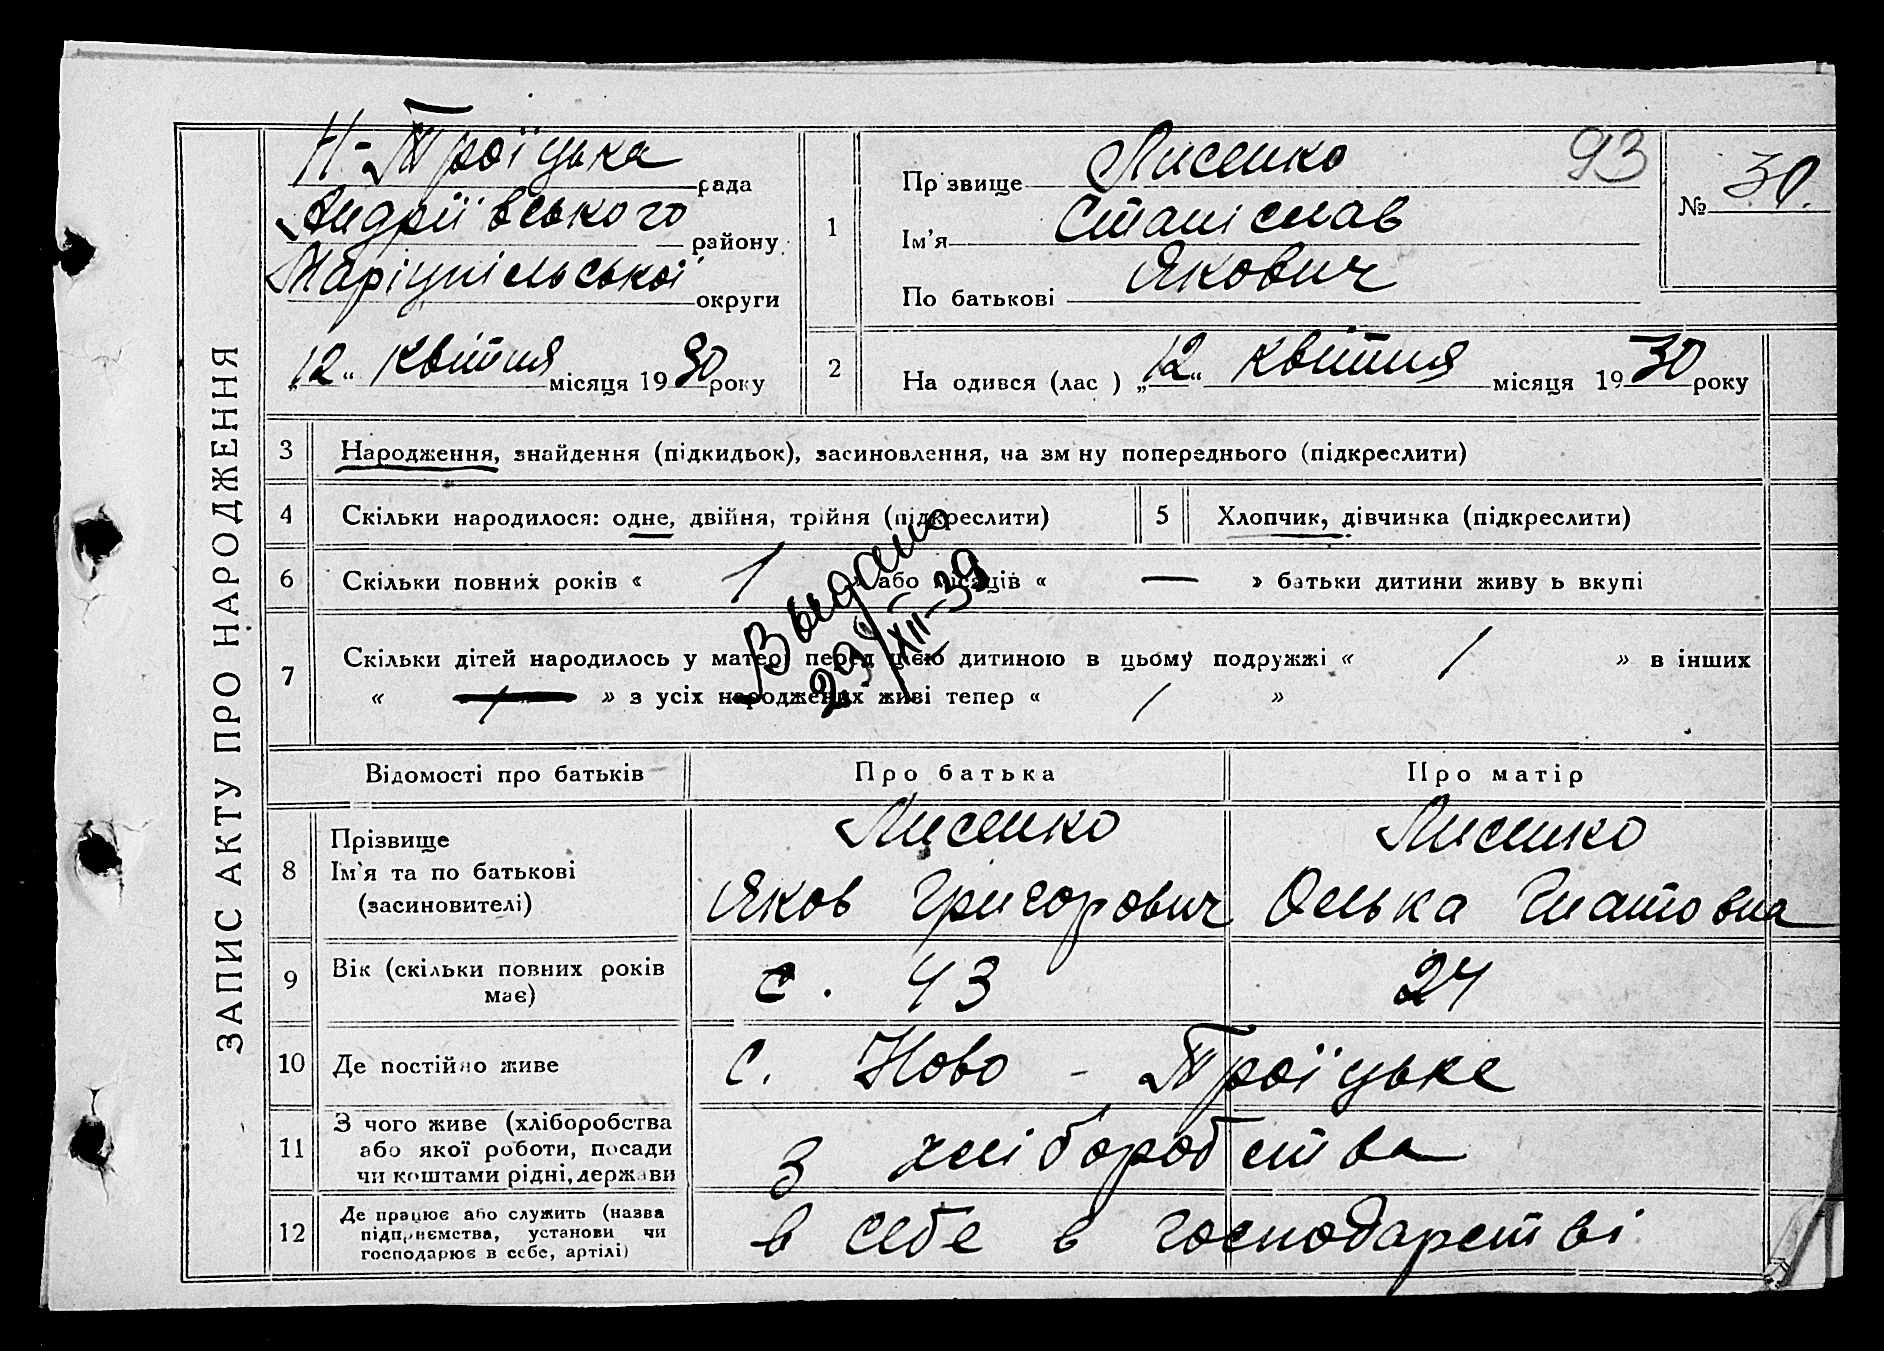 ЗАПИС АКТУ ПРО НАРОДЖЕННЯ
Н-Троїцька рада
Андріївського району
Маріупільської округи
„12“ квітня місяця 1930 року
1
Пр звище Лисенко
93
Ім'я Станіслав
По батькові Якович
№ 30.
2
На одився (лас ) „12“ квітня місяця 1930 року
3 Народження, знайдення (підкидьок), засиновлення, на зм ну попереднього (підкреслити)
4 Скільки народилося: одне, двійня, трійня (підкреслити)
5 Хлопчик, дівчинка (підкреслити)
6 Скільки повних років « 1 » або місяців « — » батьки дитини живу ь вкупі
Выдано
29/XII-39
7 Скільки дітей народилось у матері перед цією дитиною в цьому подружжі « 1 » в інших
« — » з усіх народжених живі тепер « 1 »
Відомості про батьків Про батька Про матір
8 Прізвище
Ім'я та по батькові
(засиновителі)
Лисенко
Яков Григорович
Лисенко
Олька Гнатовна
9 Вік (скільки повних років
має)
с. 43 24
10 Де постійно живе с. Ново - Троїцьке
11 З чого живе (хліборобства
або якої роботи, посади
чи коштами рідні, держави
З хліборобства
12 Де працює або служить (назва
підприємства, установи чи
господарює в себе, артілі)
в себе в господарстві